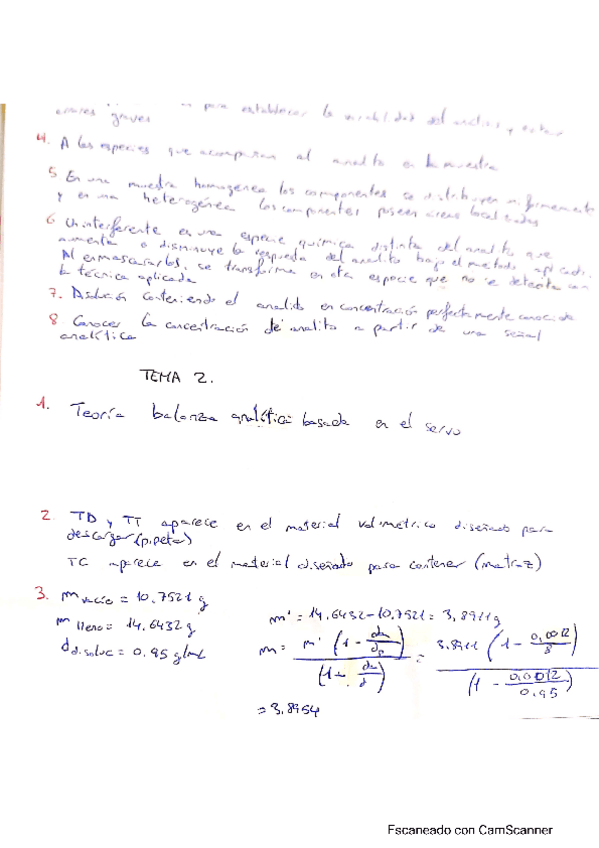 para establecer la del analisis y evitar
errores graves
4. A las especies que acompañan al analito en la muestra
5 En una muestra homogénea los componentes se distribuyen uniformemente
y en una heterogénea los componentes poseen áreas localizadas
6 Un interferente es una especie química distinta del analito que
aumenta o disminuye la respuesta del analito bajo el metodo aplicado.
Al enmascararlos, se transforma en otra especie que no se detecta con
la técnica aplicada
7. Disolución conteniendo el analito en concentración perfectamente conocida
8 Conocer la concentración de analito a partir de una señal
analítica
TEMA 2.
1. Teoría balanza analítica basada en el servo
2. TD y TT aparece en el material volumétrico diseñado para
descargar (pipeta)
TC aparece en el material diseñado para contener (matraz)
3. m vacío = 10,7521 g
m lleno = 14,6432 g
d disoluc = 0,95 g/mL
m' = 14,6432 - 10,7521 = 3,8911 g
m = m' (1 - da/dp) / (1 - da/d) = 3.8911 (1 - 0,0012/8) / (1 - 0,0012/0,95)
= 3,8954
Escaneado con CamScanner